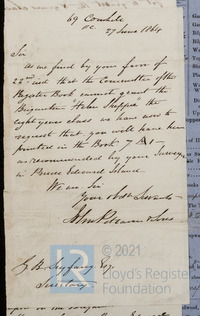 69 Cornhill
EC
27 June 1864
Sir
As we find by your favor of
22nd inst that the Committee of the
Register Book cannot grant the
Brigantine Helen Sheppie the
eight years class we have now to
request that you will have them
printed in the Book 7 A1
as recommended by your Surveyor
in Prince Edward Island.
We are Sir
Your obdt Servants
John Pitcairn & Sons
Esq
Secretary
© 2021
LR
Lloyd's Register
Foundation